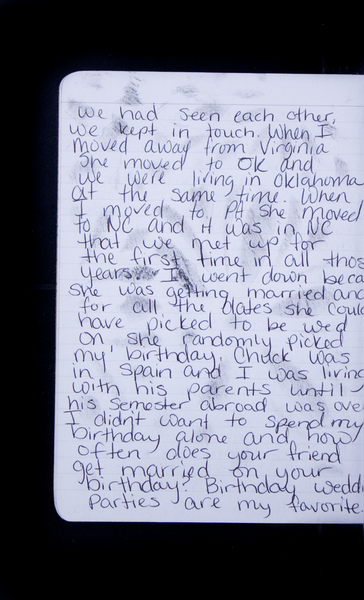 we had seen each other,
we kept in touch. When I
moved away from Virginia
She moved to OK and
we were living in Oklahoma
at the same time. When
I moved to PA she moved
to NC and it was in NC
that we met up for
the first time in all thos
years. I went down beca
she was getting married and
for all the dates she could
have picked to be wed
on, she randomly picked
my birthday. Chuck was
in Spain and I was living
with his parents until
his semester abroad was over
I didnt want to spend my
birthday alone and how
often does your friend
get married on your
birthday? Birthday weddi
parties are my favorite.